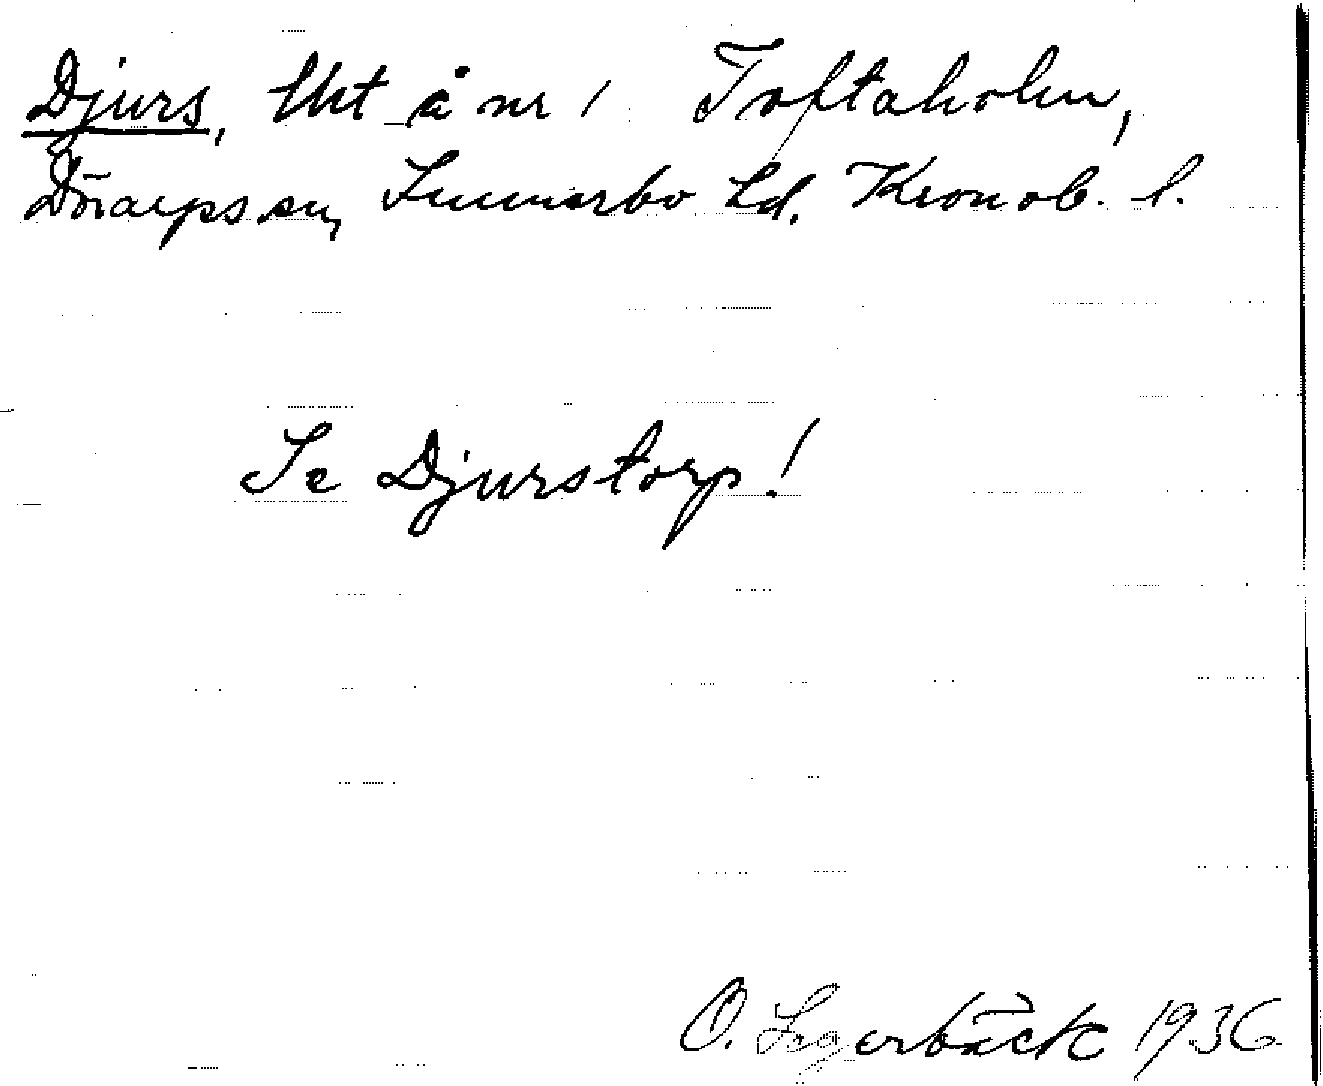 Djurs, lht å nr 1 Toftaholm,
Dörarps sn, Sunnerbo hd. Kronob. l.
Se Djurstorp!
O. Lagerbäck 1936